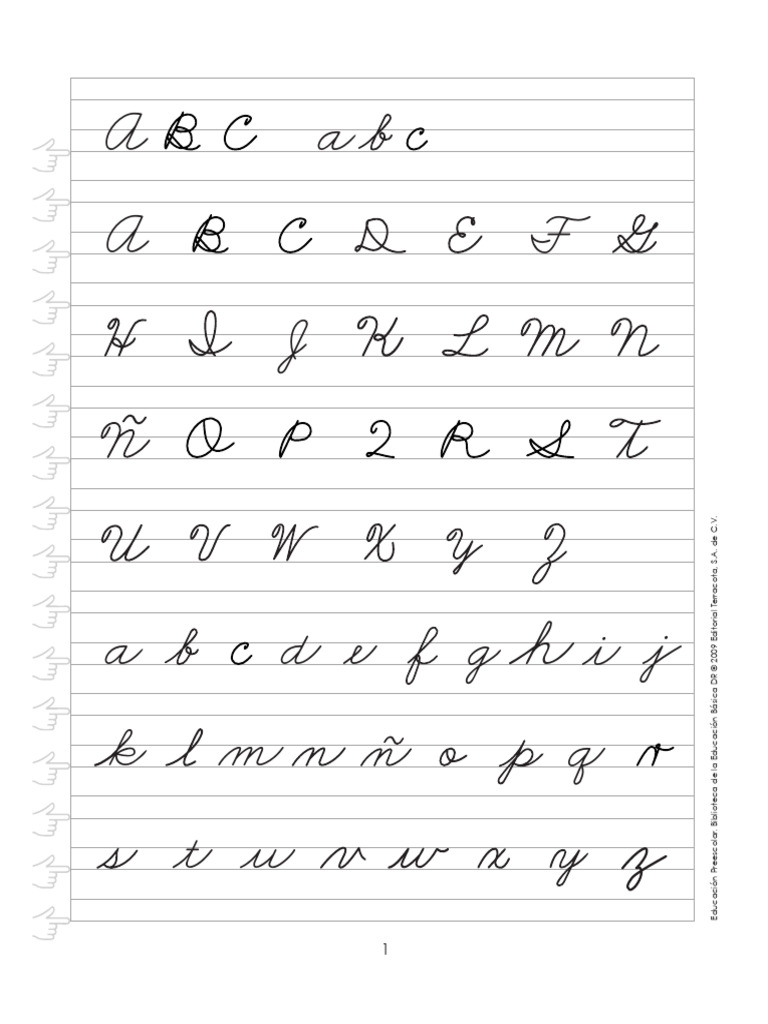 A B C a b c
A B C D E F G
H I J K L M N
Ñ O P Q R S T
U V W X Y Z
a b c d e f g h i j
k l m n ñ o p q r
s t u v w x y z
Educación Preescolar. Biblioteca de la Educación Básica DR © 2009 Editorial Terracota, S.A. de C.V.
1